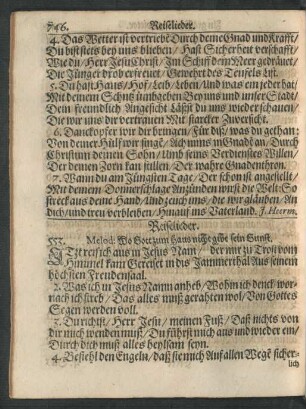 746. Reiselieder.
4. Das Wetter ist vertriebē Durch deine Gnad und Krafft/
Du bist stets bey uns bliebē / Hast Sicherheit verschafft/
Wie du / Herr Jesu Christ / Im Schiff dem Meer gedräuet/
Die Jünger drob erfreuet / Gewehrt des Teufels List.
5. Du hast Haus / Hof / Leib / Leben / Und was ein jeder hat/
Mit deinem Schutz umbgeben Bey uns in unser Stadt/
Dein freundlich Angesicht Läßst du uns wieder schauen/
Die wir uns dir vertrauen Mit starcker Zuversicht.
6. Danckopfer wir dir bringen / Für diß / was du gethan:
Von deiner Hülf wir singē / Ach nims in Gnadē an. Durch
Christum deinen Sohn / Umb seines Verdienstes Willen /
Der deinen Zorn kan stillen / Der wahre Gnadenthron.
7. Wann du am Jüngsten Tag / Der schon ist angestellt/
Mit deinem Donnerschlage Anzünden wirst die Welt: So
streck aus deine Hand / Und zeuch uns / die wir gläuben / An
dich / und treu verbleiben / Hinauf ins Vaterland. J. Heerm.
Reiselieder.
553. Melod: Wo Gott zum Haus nicht gibt sein Gunst.
JTzt reis ich aus in Jesus Nam / der mir zu Trost vom
Himmel kam Gereiset in dis Jammerthal Aus seinem
höchsten Freudensaal.
2. Was ich in Jesus Namn anheb / Wohin ich denck wor-
nach ich streb / Das alles muß gerahten wol / Von Gottes
Segen werden voll.
3. Du richtst / Herr Jesu / meinen Fuß / Daß nichts von
dir mich wenden muß / Du führst mich aus und wieder ein /
Durch dich muß alles heylsam seyn.
4. Befiehl den Engeln / daß sie mich Auf allen Wegē sicher-
lich